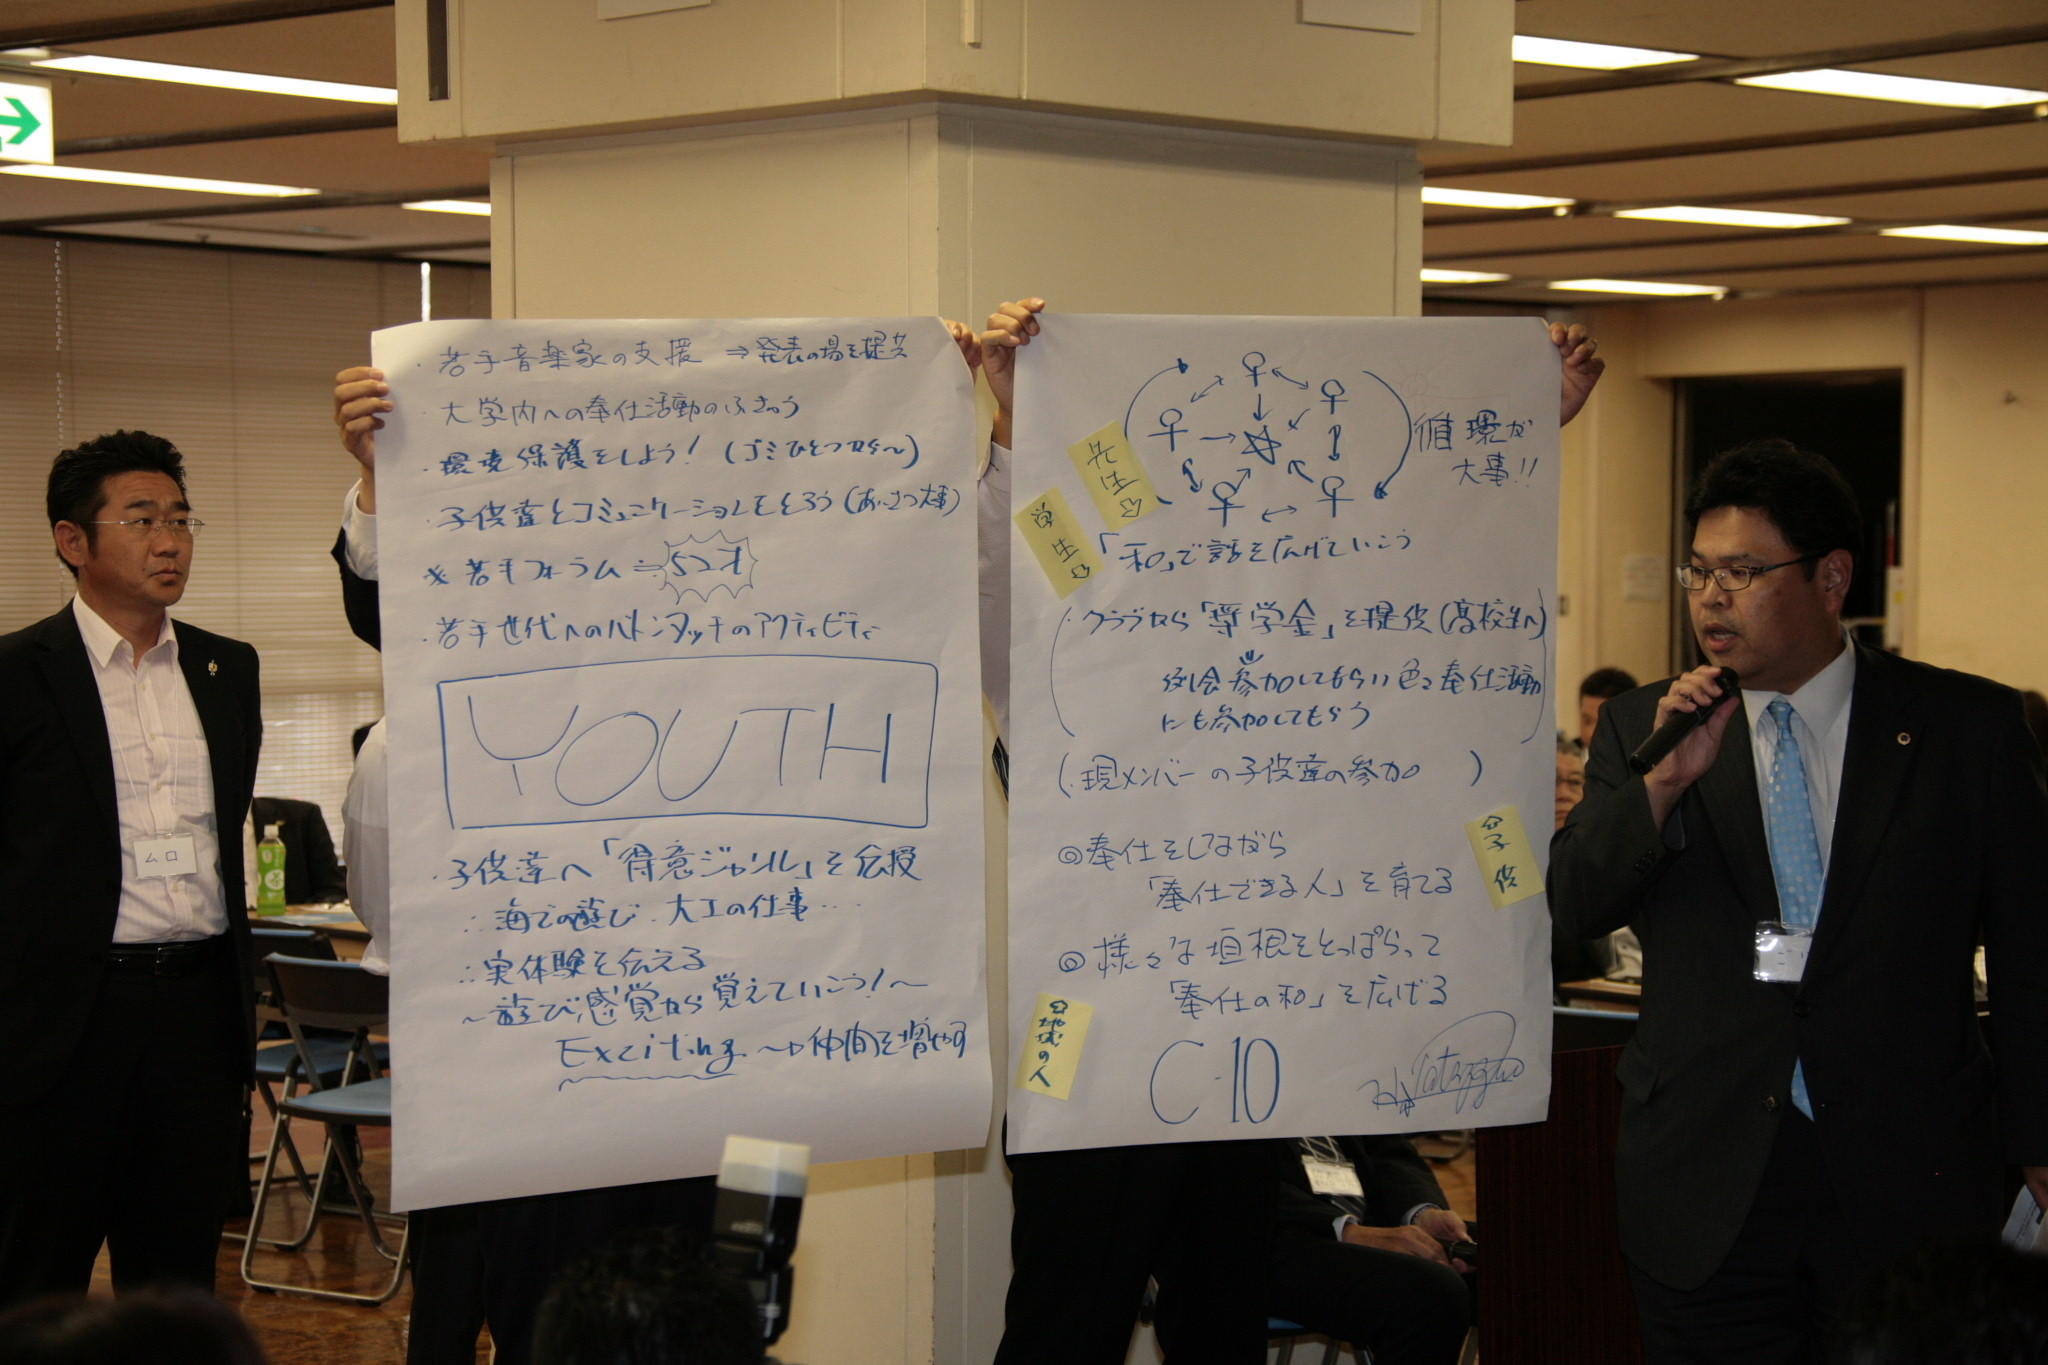 ・若手音楽家の支援 ⇒発表の場を提供
・大学内への奉仕活動のふきゅう
・環境保護をしよう！（ゴミひとつから〜）
・子供達とコミュニケーションをとろう（あいさつ大事）
※若手フォーラム≒52才
・若手世代へのバトンタッチのアクティビティ
YOUTH
・子供達へ「得意ジャンル」を伝授
∴海での遊び、大工の仕事…
∴実体験を伝える
〜遊び感覚から覚えていこう！〜
Exciting 〜→仲間を増やす
循環が
大事!!
先生⇨
学生⇨
「和」で話を広げていこう
（・クラブから「奨学金」を提供（高校生へ）
例会参加してもらい色々奉仕活動
にも参加してもらう
（・現メンバーの子供達の参加　）
◎奉仕をしながら
「奉仕できる人」を育てる
⇦子供
◎様々な垣根をとっぱらって
「奉仕の和」を広げる
⇦地域の人
C-10
ムロ